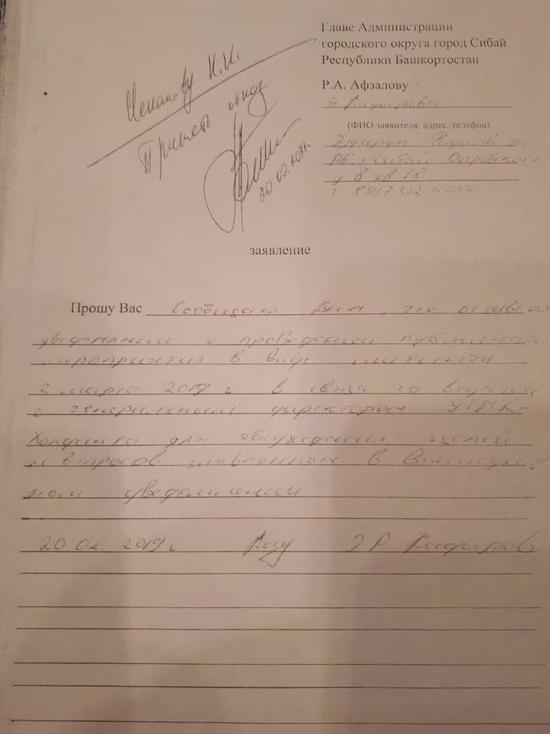 Главе Администрации
городского округа город Сибай
Республики Башкортостан
Р.А. Афзалову
(ФИО заявителя, адрес, телефон)
Принять отказ
20.02.2019г.
заявление
Прошу Вас Сообщаю Вам, что отзываю
уведомление о проведении публичного
мероприятия в виде митинга
2 марта 2019 г в связи со встречей
с генеральным директором УГМК-
Холдинга для обсуждения целей
и вопросов заявленных в
ном уведомлении
20 02 2019 г